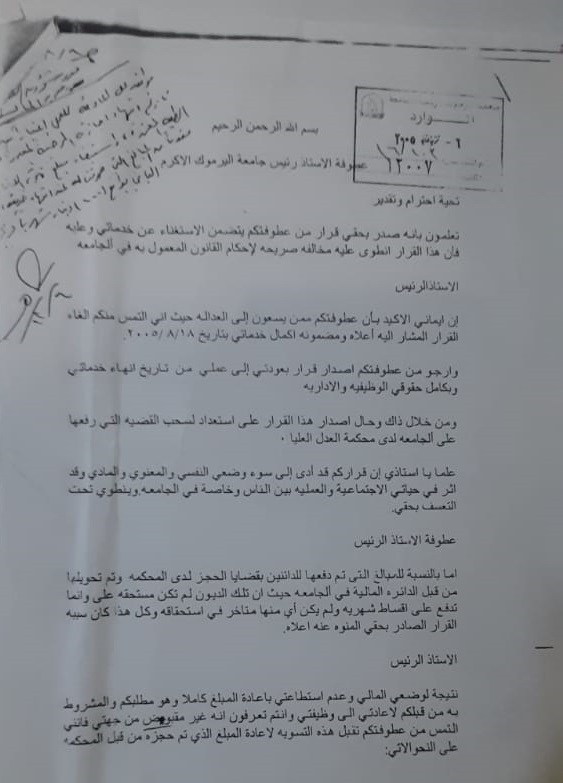 الوارد
٦ - ٢٠٠٥
١٢٠٠٧
بسم الله الرحمن الرحيم
عطوفة الاستاذ رئيس جامعة اليرموك الاكرم
تحية احترام وتقدير
تعلمون بانه صدر بحقي قرار من عطوفتكم يتضمن الاستغناء عن خدماتي وعليه
فأن هذا القرار انطوى عليه مخالفه صريحه لإحكام القانون المعمول به في ألجامعه
الاستاذالرئيس
إن ايماني الاكيد بأن عطوفتكم ممن يسعون إلى العداله حيث اني التمس منكم الغاء
القرار المشار اليه أعلاه ومضمونه اكمال خدماتي بتاريخ ٢٠٠٥/٨/١٨.
وارجو من عطوفتكم اصدار قرار بعودتي إلى عملي من تاريخ انهاء خدماتي
وبكامل حقوقي الوظيفيه والاداريه
ومن خلال ذاك وحال اصدار هذا القرار على استعداد لسحب القضيه التي رفعها
على ألجامعه لدى محكمة العدل العليا ٠
علما يا استاذي إن قراركم قد أدى إلى سوء وضعي النفسي والمعنوي والمادي وقد
اثر في حياتي الاجتماعية والعمليه بين الناس وخاصة في الجامعه,وينطوي تحت
التعسف بحقي.
عطوفة الاستاذ الرئيس
اما بالنسبة للمبالغ التى تم دفعها للدائنين بقضايا الحجز لدى المحكمه وتم تحويلها
من قبل الدائره المالية في ألجامعه حيث ان تلك الديون لم تكن مستحقه على وانما
تدفع على اقساط شهريه ولم يكن أي منها متاخر في استحقاقه وكل هذا كان سببه
القرار الصادر بحقي المنوه عنه اعلاه.
الاستاذ الرئيس
نتيجة لوضعي المالي وعدم استطاعتي باعادة المبلغ كاملا وهو مطلبكم والمشروط
به من قبلكم لاعادتي الى وظيفتي وانتم تعرفون انه غير مقبوض من جهتي فانني
التمس من عطوفتكم تقبل هذه التسويه لاعادة المبلغ الذي تم حجزه من قبل المحكمه
على النحوالاتي: